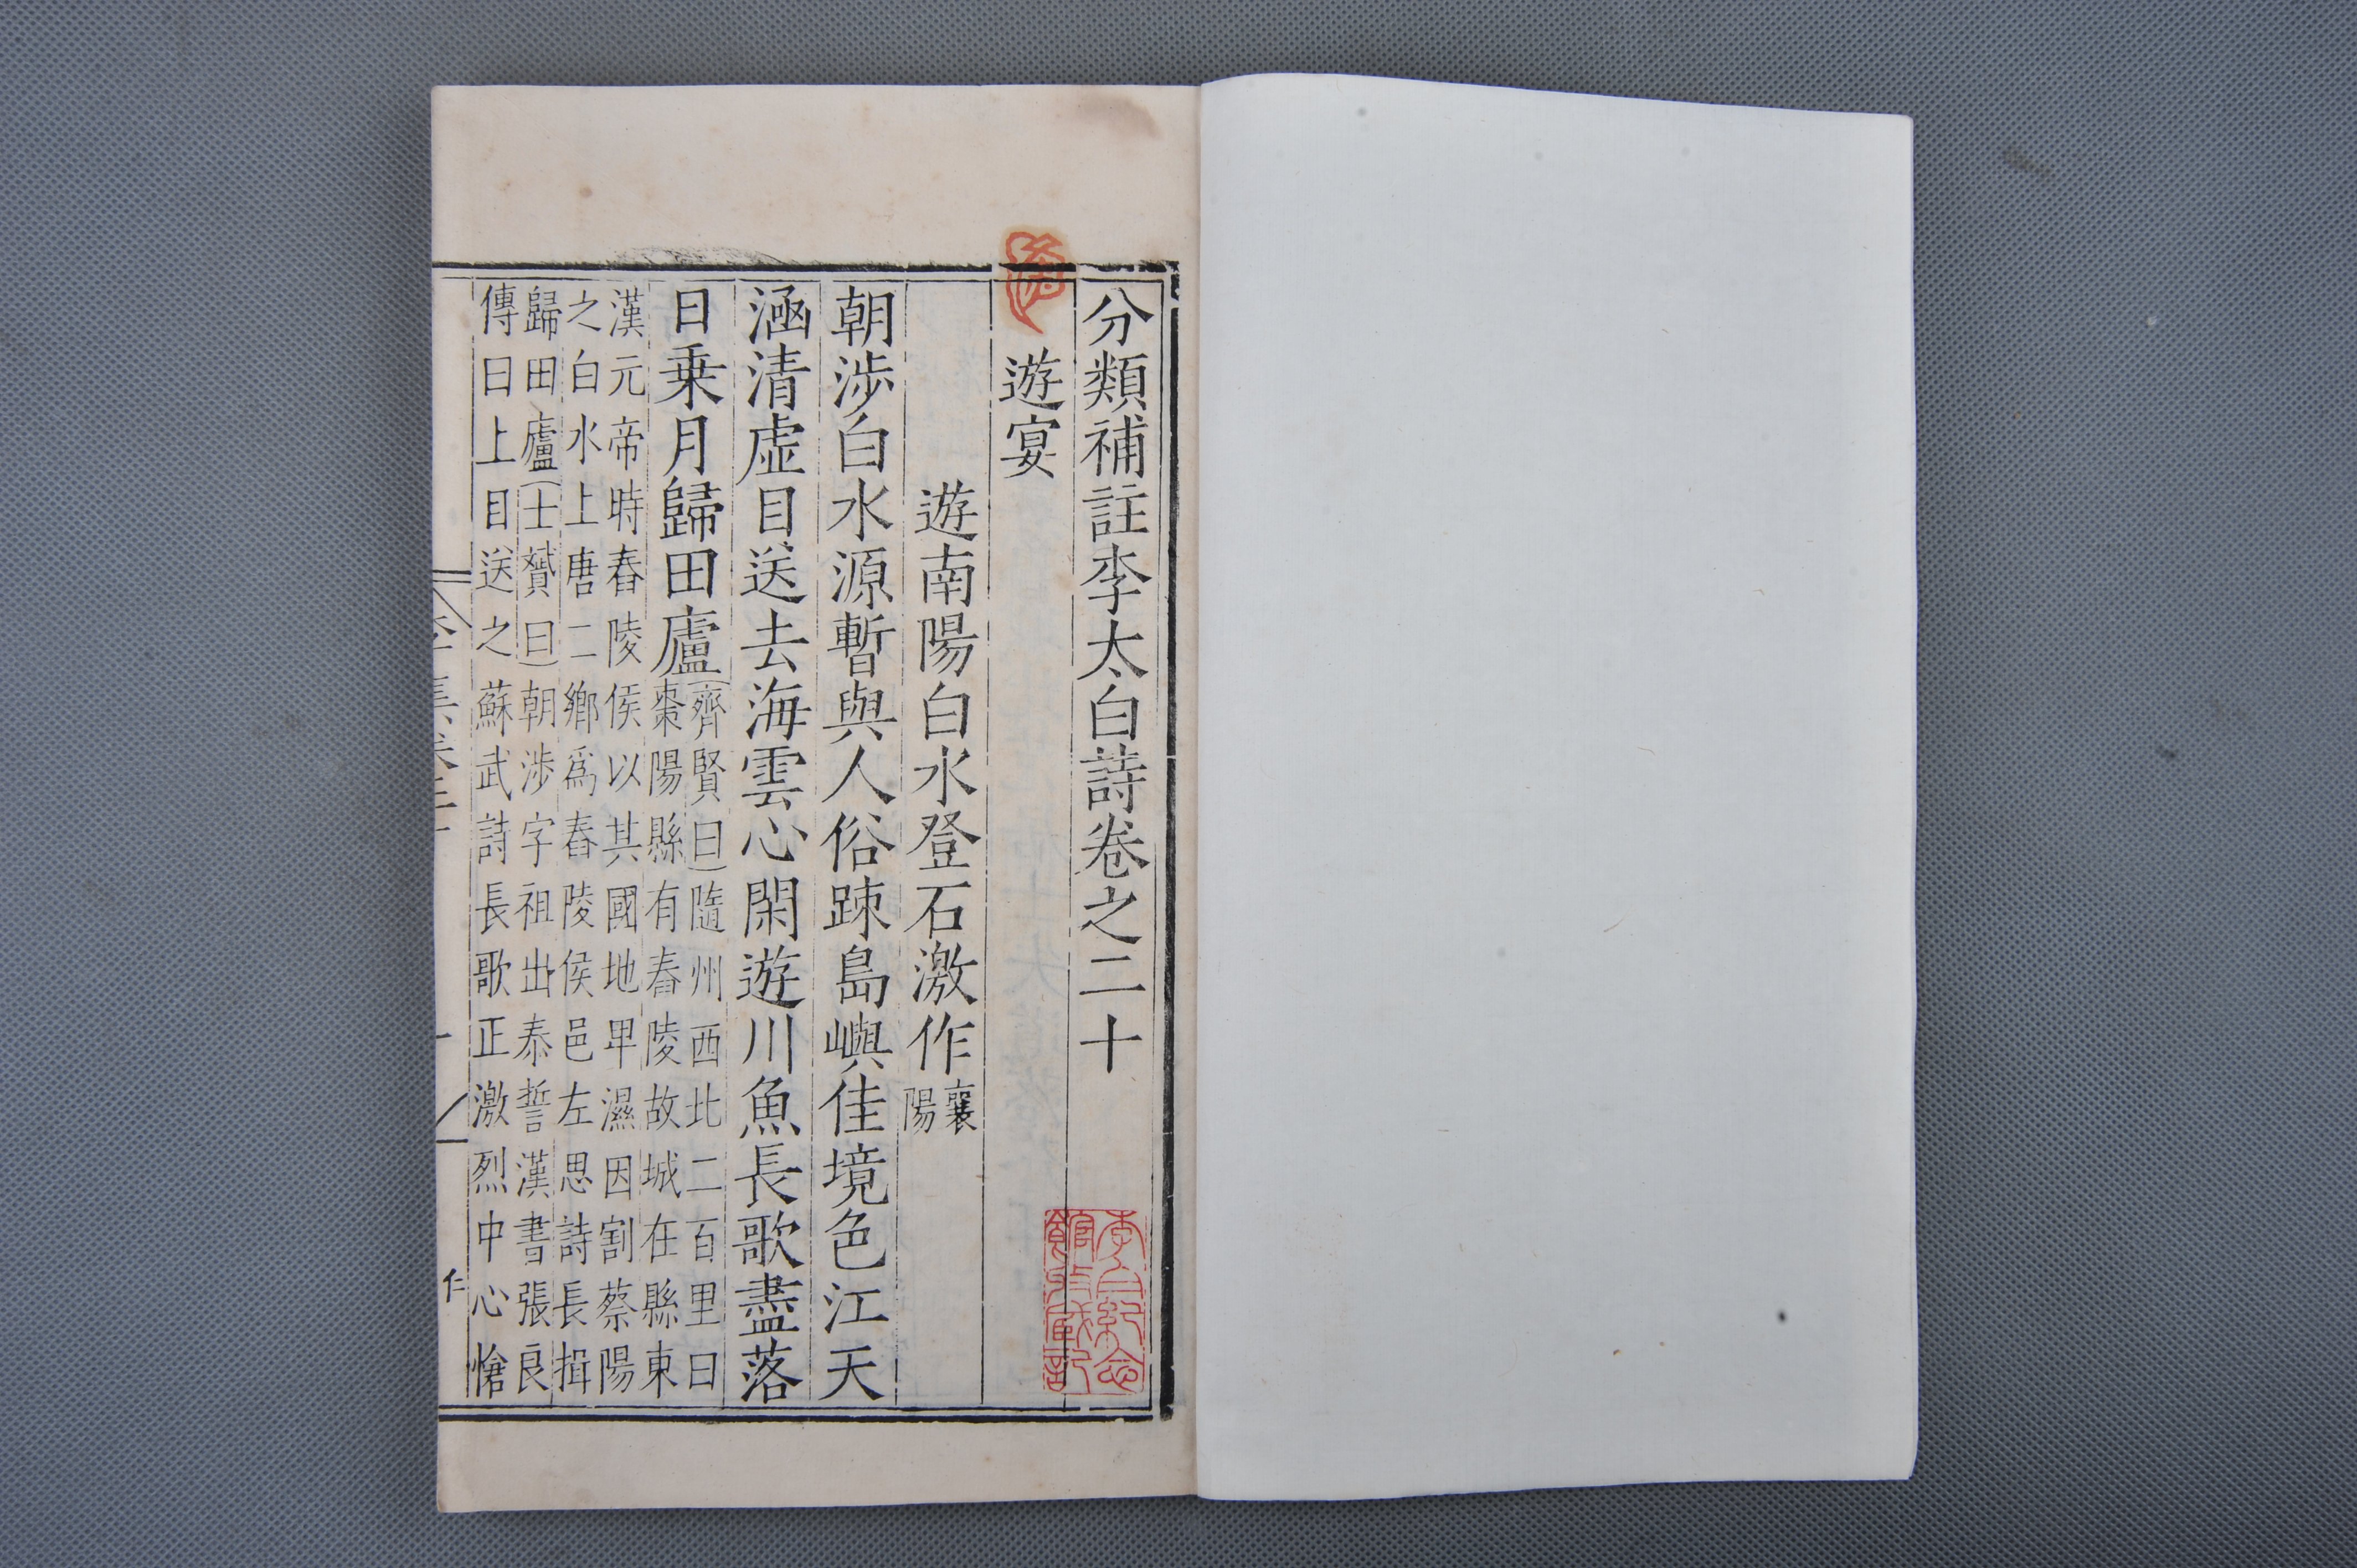 分類補註李太白詩卷之二十
遊宴
遊南陽白水登石激作襄陽
朝渉白水源暫與人俗踈島嶼佳境色江天
涵清虛目送去海雲心閑遊川魚長歌盡落
日乗月歸田廬齊賢曰隨州西北二百里曰
棗陽縣有舂陵故城在縣東
漢元帝時舂陵侯以其國地卑濕因割蔡陽
之白水上唐二鄉爲舂陵侯邑左思詩長揖
歸田廬士贇曰朝渉字祖出泰誓漢書張良
傳曰上目送之蘇武詩長歌正激烈中心愴
仁
李白紀念
館收藏記